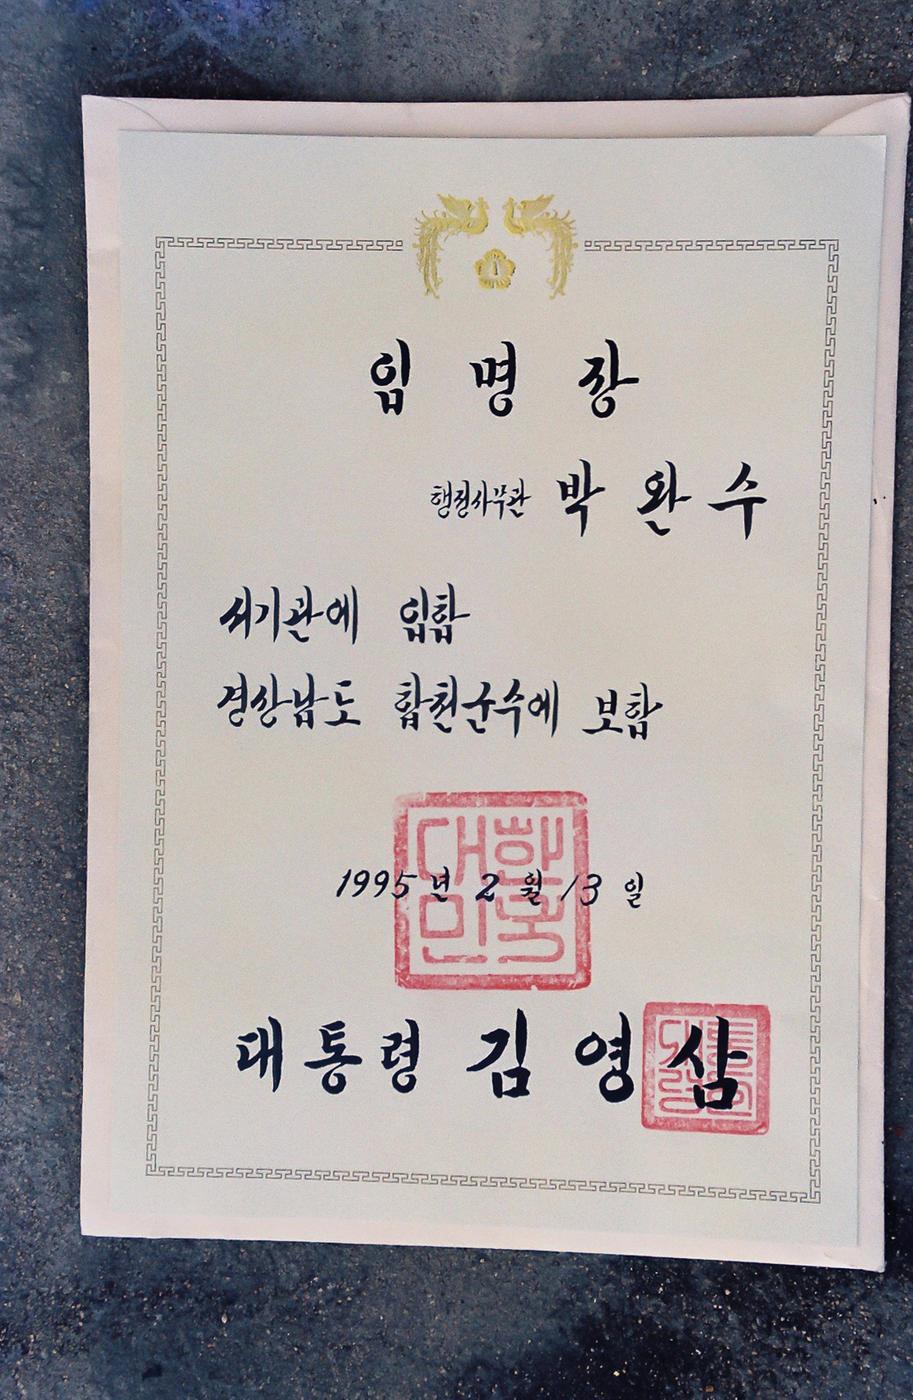 임명장
행정사무관 박완수
서기관에 임함
경상남도 합천군수에 보함
1995년 2월 13일
대한민국
대통령 김영삼